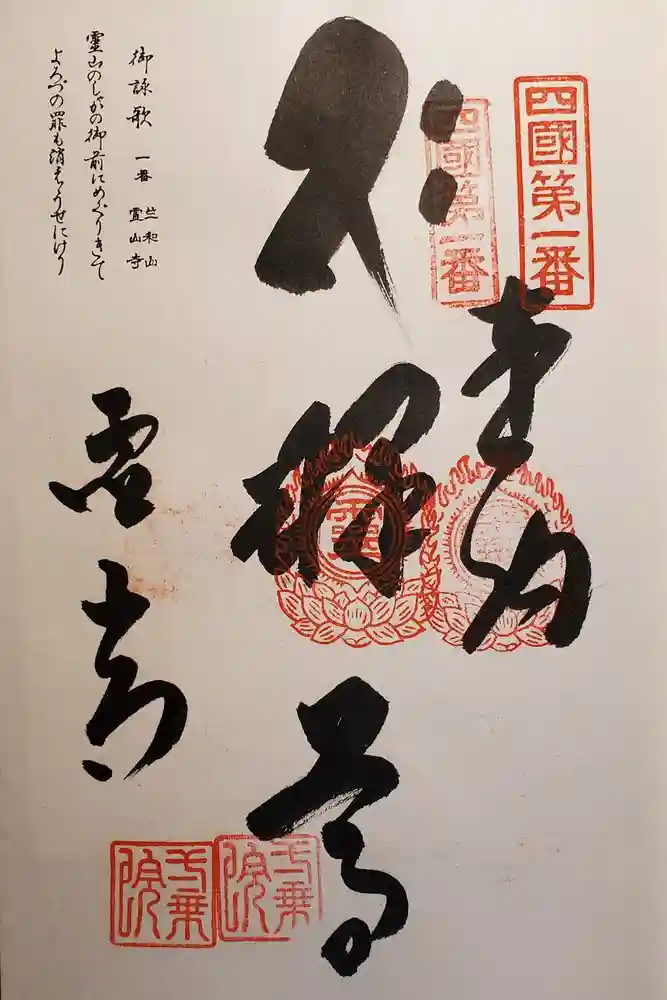 四國第一番
四國第一番
奉納
靈
一乗院
一乗院
御詠歌 一番 竺和山 霊山寺
靈山のしゃかの御前にめぐりきて
よろづの罪も消えうせにけり